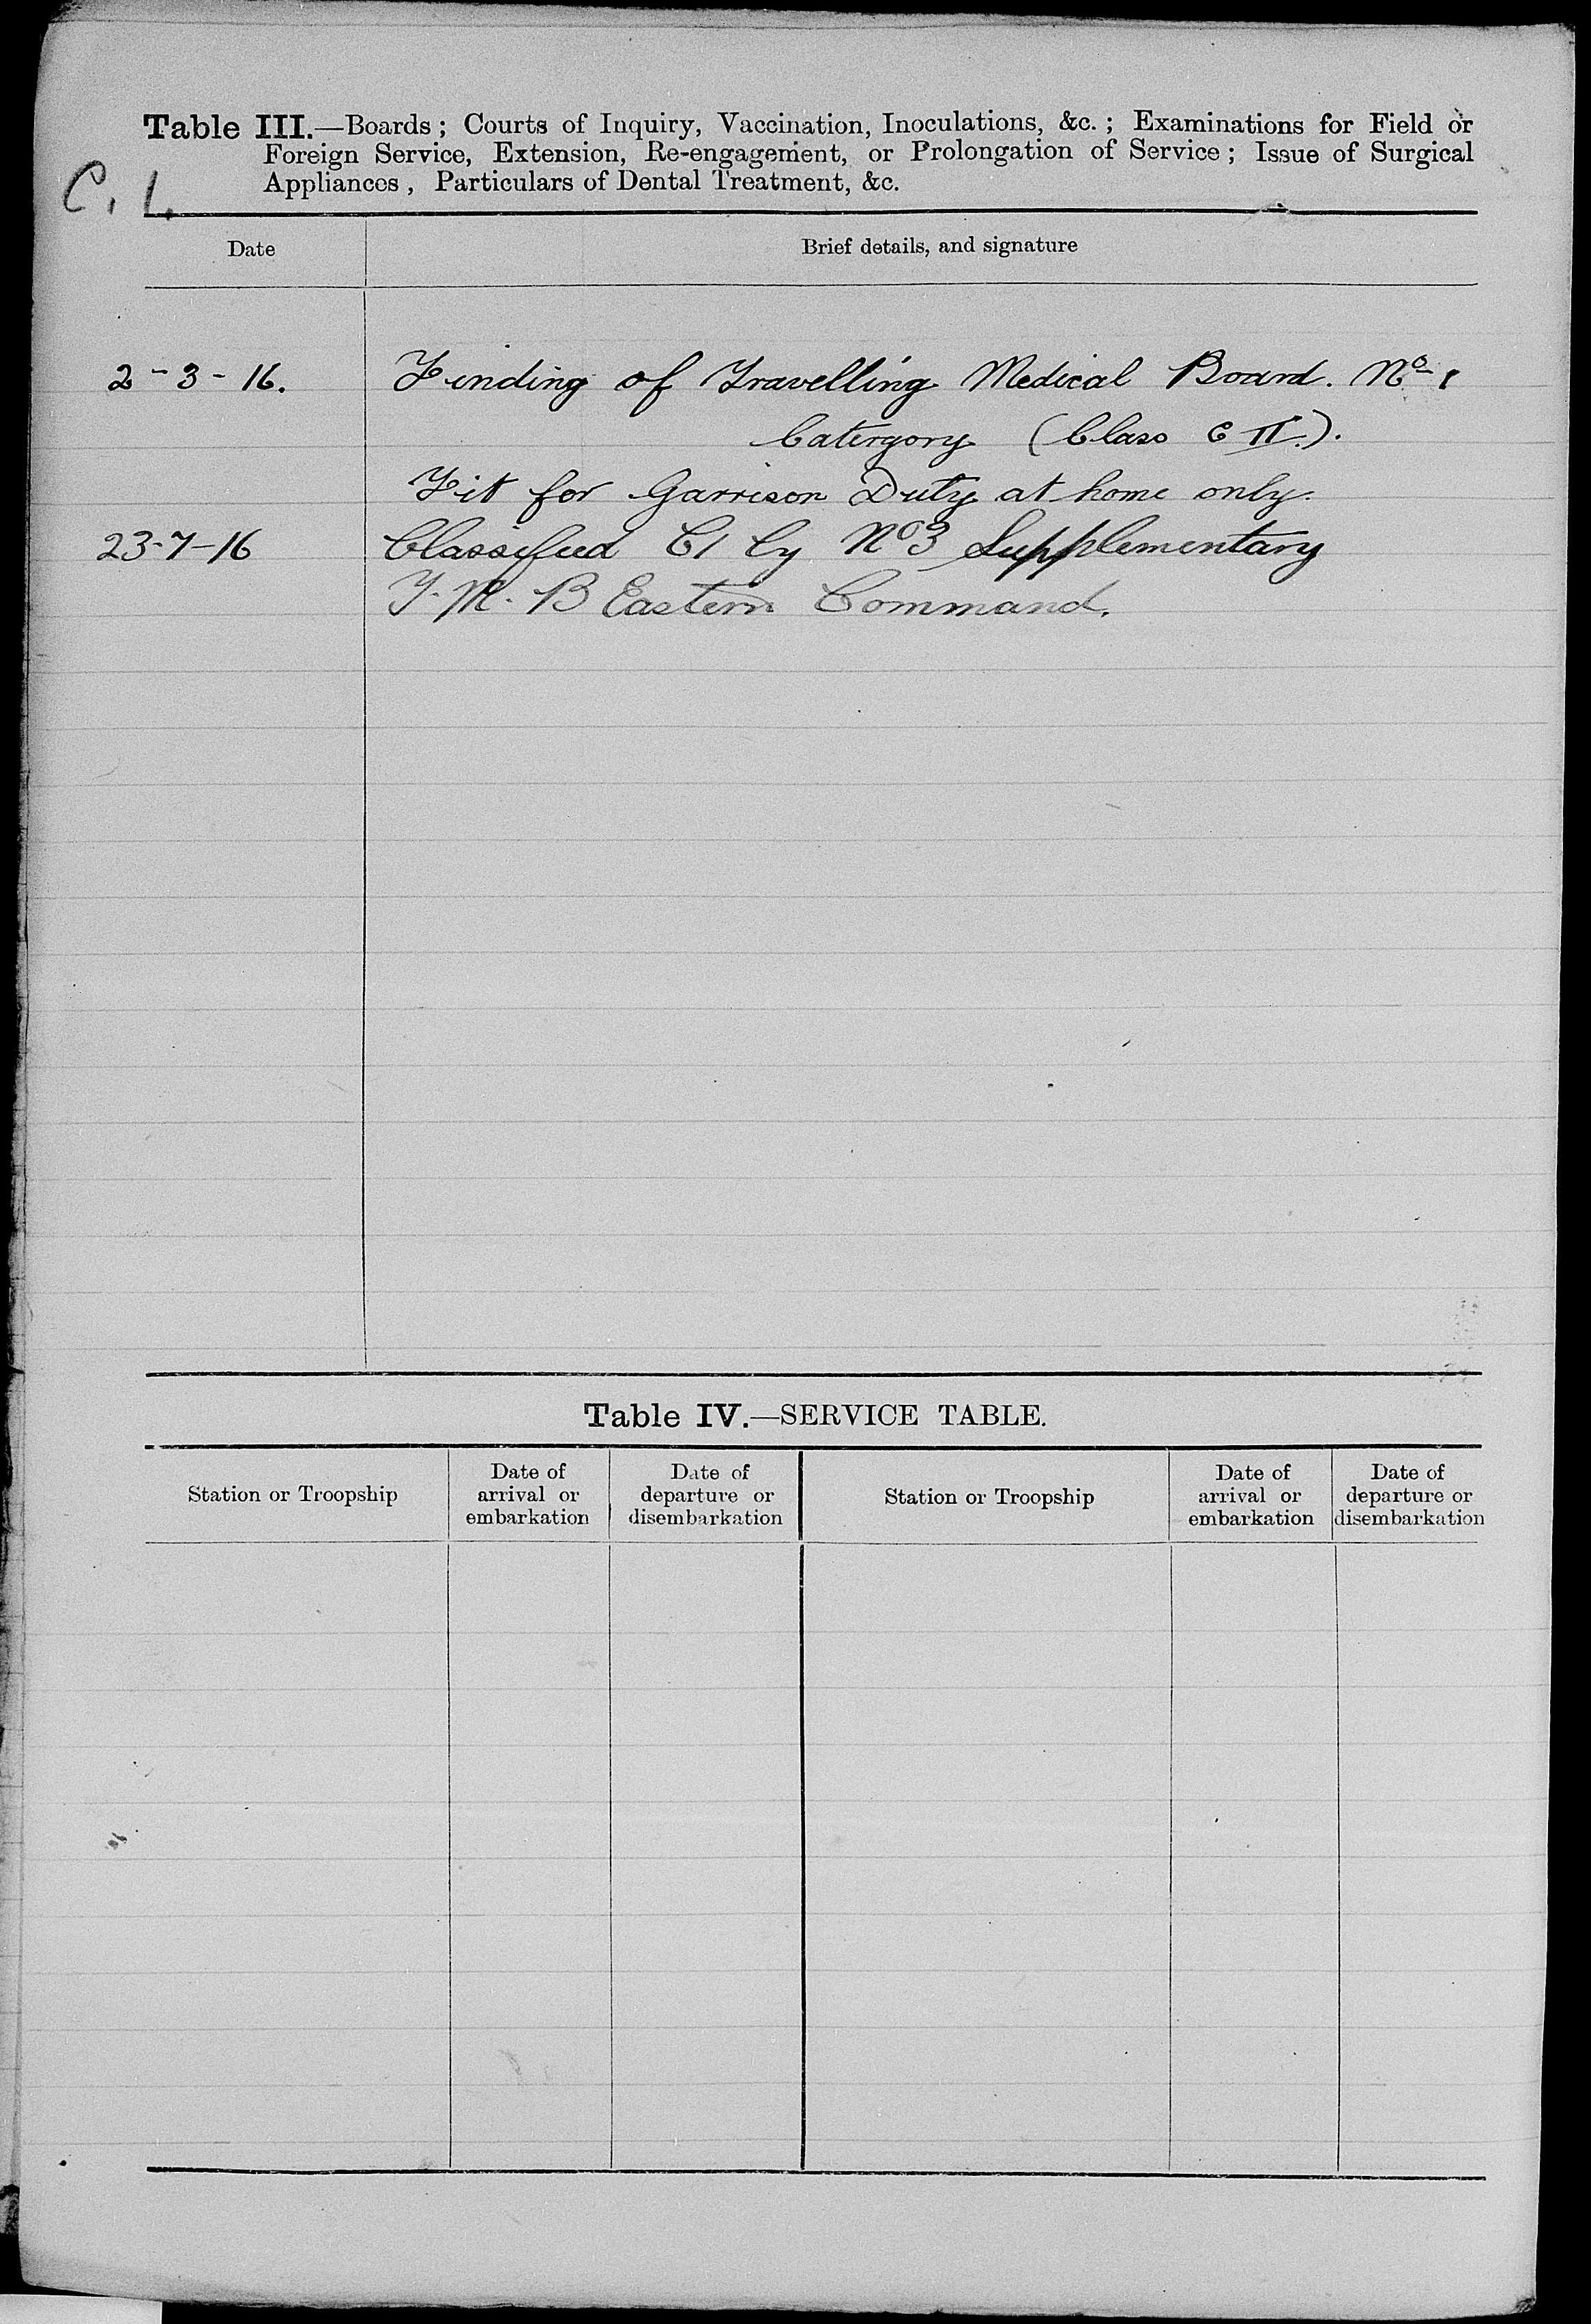 Table III.—Boards; Courts of Inquiry, Vaccination, Inoculations, &c.; Examinations for Field or
Foreign Service, Extension, Re-engagement, or Prolongation of Service; Issue of Surgical
Appliances, Particulars of Dental Treatment, &c.
C. 1.
Date Brief details, and signature
2-3-16. Finding of Travelling Medical Board. No 1
Catergory (Class C II.).
Fit for Garrison Duty at home only.
23-7-16 Classified C1 by No 3 Supplementary
T. M. B Eastern Command.
Table IV.—SERVICE TABLE.
Station or Troopship Date of arrival or embarkation Date of departure or disembarkation Station or Troopship Date of arrival or embarkation Date of departure or disembarkation